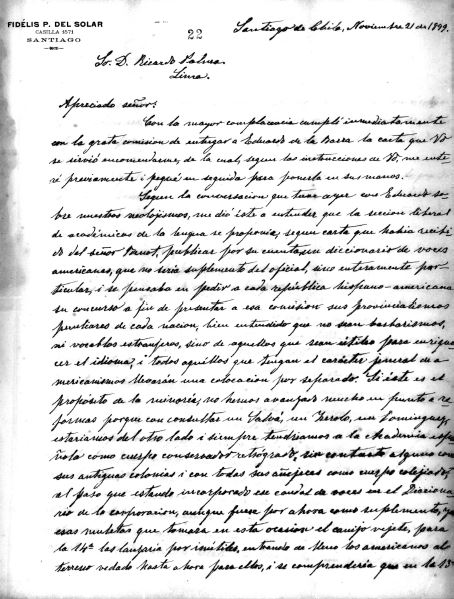 FIDÉLIS P. DEL SOLAR
CASILLA 1571
SANTIAGO
22
Santiago de Chile, Noviembre 21 de 1899.
Sr. D. Ricardo Palma.
Lima.
Apreciado señor:
Con la mayor complacencia cumplí inmediatamente
con la grata comision de entregar a Eduardo de la Barra la carta que Vd
se sirvió encomendarme, de la cual, segun las instrucciones de Vd, me ente-
ré previamente i pegué en seguida para ponerla en sus manos.
Segun la conversacion que tuve ayer con Eduardo so-
bre nuestros neolojismos, me dió éste a entender que la seccion liberal
de académicos de la lengua se proponia, segun carta que habia recibi-
do del señor Benot, publicar por su cuenta un diccionario de voces
americanas, que no seria suplemento del oficial, sino enteramente par-
ticular, i se pensaba en pedir a cada república hispano-americana
su concurso a fin de presentar a esa comision sus provincialismos
peculiares de cada nacion, bien entendido que no sean barbarismos,
ni vocablos estranjeros, sino de aquellos que sean útiles para enrique-
cer el idioma, i todos aquellos que tengan el carácter jeneral de a-
mericanismos llevarán una colocacion por separado. Si éste es el
propósito de la minoria, no hemos avanzado mucho en punto a re-
formas porque con consultar un Salvá, un Terrolo, un Dominguez,
estaríamos del otro lado i siempre tendríamos a la Academia espa-
ñola como cuerpo conservador retrógrado, sin contacto alguno con
sus antiguas colonias i con todas sus añejeces como cuerpo colejiado,
al paso que estando incorporado ese caudal de voces en el Dicciona-
rio de la corporacion, aunque fuera por ahora como suplemento,
esas muletas que tomara en esta ocasion el canijo vejete, para
la 14ª las lanzaria por inútiles, entrando de lleno los americanos al
terreno vedado hasta ahora para ellos, i se comprenderia que en la 13ª